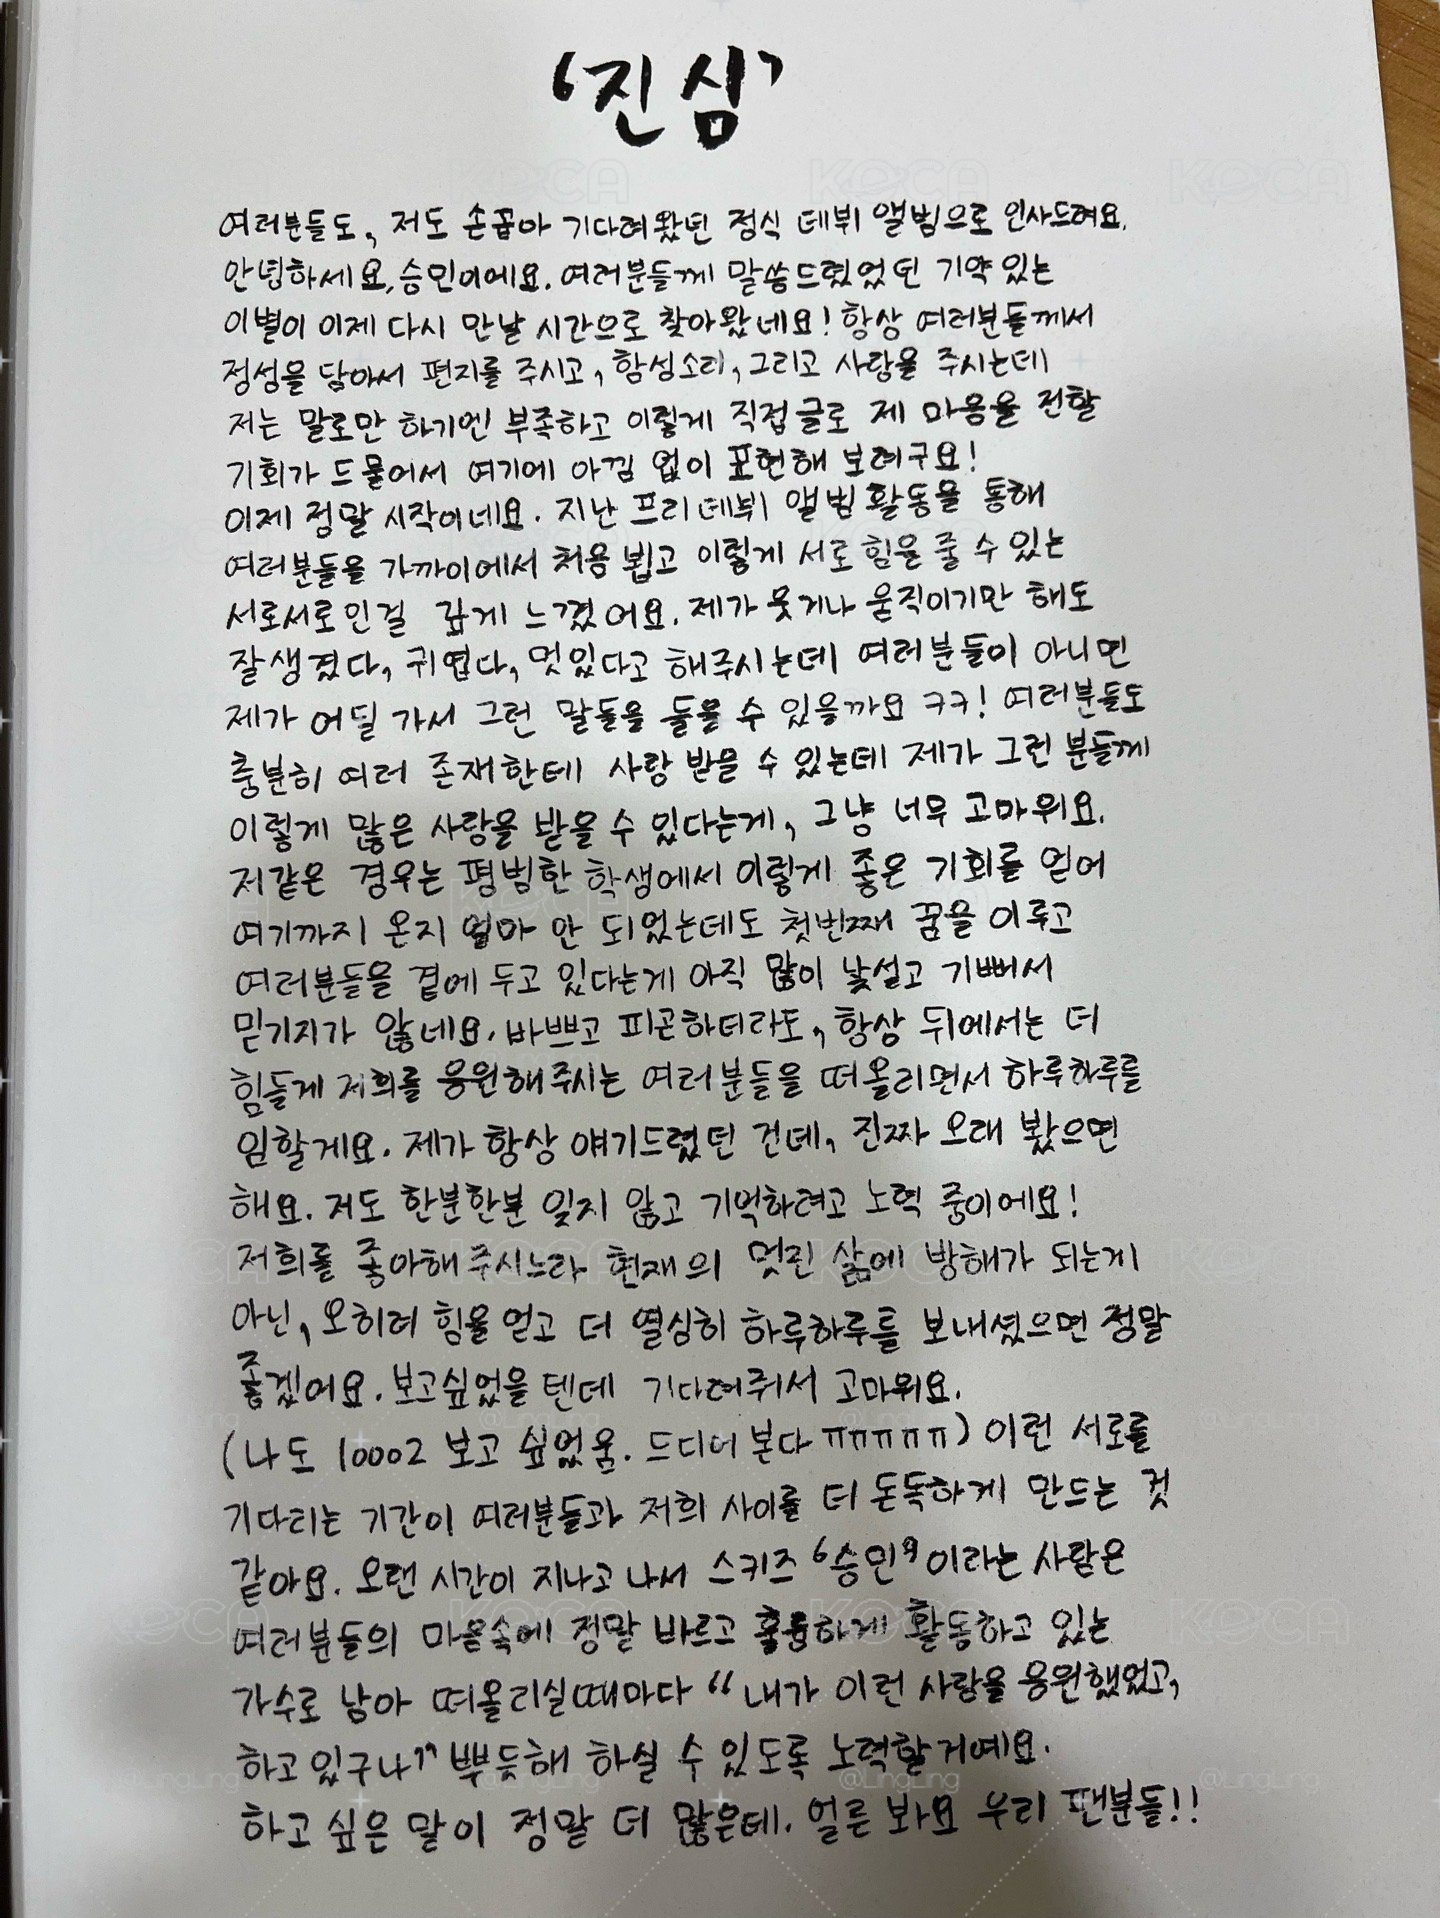 '진심'
여러분들도, 저도 손꼽아 기다려왔던 정식 데뷔 앨범으로 인사드려요.
안녕하세요, 승민이에요. 여러분들께 말씀드렸었던 기약 있는
이별이 이제 다시 만날 시간으로 찾아왔네요! 항상 여러분들께서
정성을 담아서 편지를 주시고, 함성소리, 그리고 사랑을 주시는데
저는 말로만 하기엔 부족하고 이렇게 직접 글로 제 마음을 전할
기회가 드물어서 여기에 아낌 없이 표현해 보려구요!
이제 정말 시작이네요. 지난 프리데뷔 앨범 활동을 통해
여러분들을 가까이에서 처음 뵙고 이렇게 서로 힘을 줄 수 있는
서로서로인걸 깊게 느꼈어요. 제가 웃거나 움직이기만 해도
잘생겼다, 귀엽다, 멋있다고 해주시는데 여러분들이 아니면
제가 어딜 가서 그런 말들을 들을 수 있을까요 ㅋㅋ! 여러분들도
충분히 여러 존재한테 사랑 받을 수 있는데 제가 그런 분들께
이렇게 많은 사랑을 받을 수 있다는게, 그냥 너무 고마워요.
저같은 경우는 평범한 학생에서 이렇게 좋은 기회를 얻어
여기까지 온지 얼마 안 되었는데도 첫번째 꿈을 이루고
여러분들을 곁에 두고 있다는게 아직 많이 낯설고 기뻐서
믿기지가 않네요. 바쁘고 피곤하더라도, 항상 뒤에서는 더
힘들게 저희를 응원해주시는 여러분들을 떠올리면서 하루하루를
임할게요. 제가 항상 얘기드렸던 건데, 진짜 오래 봤으면
해요. 저도 한분한분 잊지 않고 기억하려고 노력 중이에요!
저희를 좋아해주시느라 현재의 멋진 삶에 방해가 되는게
아닌, 오히려 힘을 얻고 더 열심히 하루하루를 보내셨으면 정말
좋겠어요. 보고싶었을텐데 기다려줘서 고마워요.
(나도 10002 보고 싶었움. 드디어 본다 ㅠㅠㅠㅠㅠ) 이런 서로를
기다리는 기간이 여러분들과 저희 사이를 더 돈독하게 만드는 것
같아요. 오랜 시간이 지나고 나서 스키즈 '승민'이라는 사람은
여러분들의 마음속에 정말 바르고 훌륭하게 활동하고 있는
가수로 남아 떠올리실때마다 "내가 이런 사람을 응원했었고,
하고 있구나" 뿌듯해 하실 수 있도록 노력할거예요.
하고 싶은 말이 정말 더 많은데. 얼른 봐요 우리 팬분들!!
KOCA
@LingLing